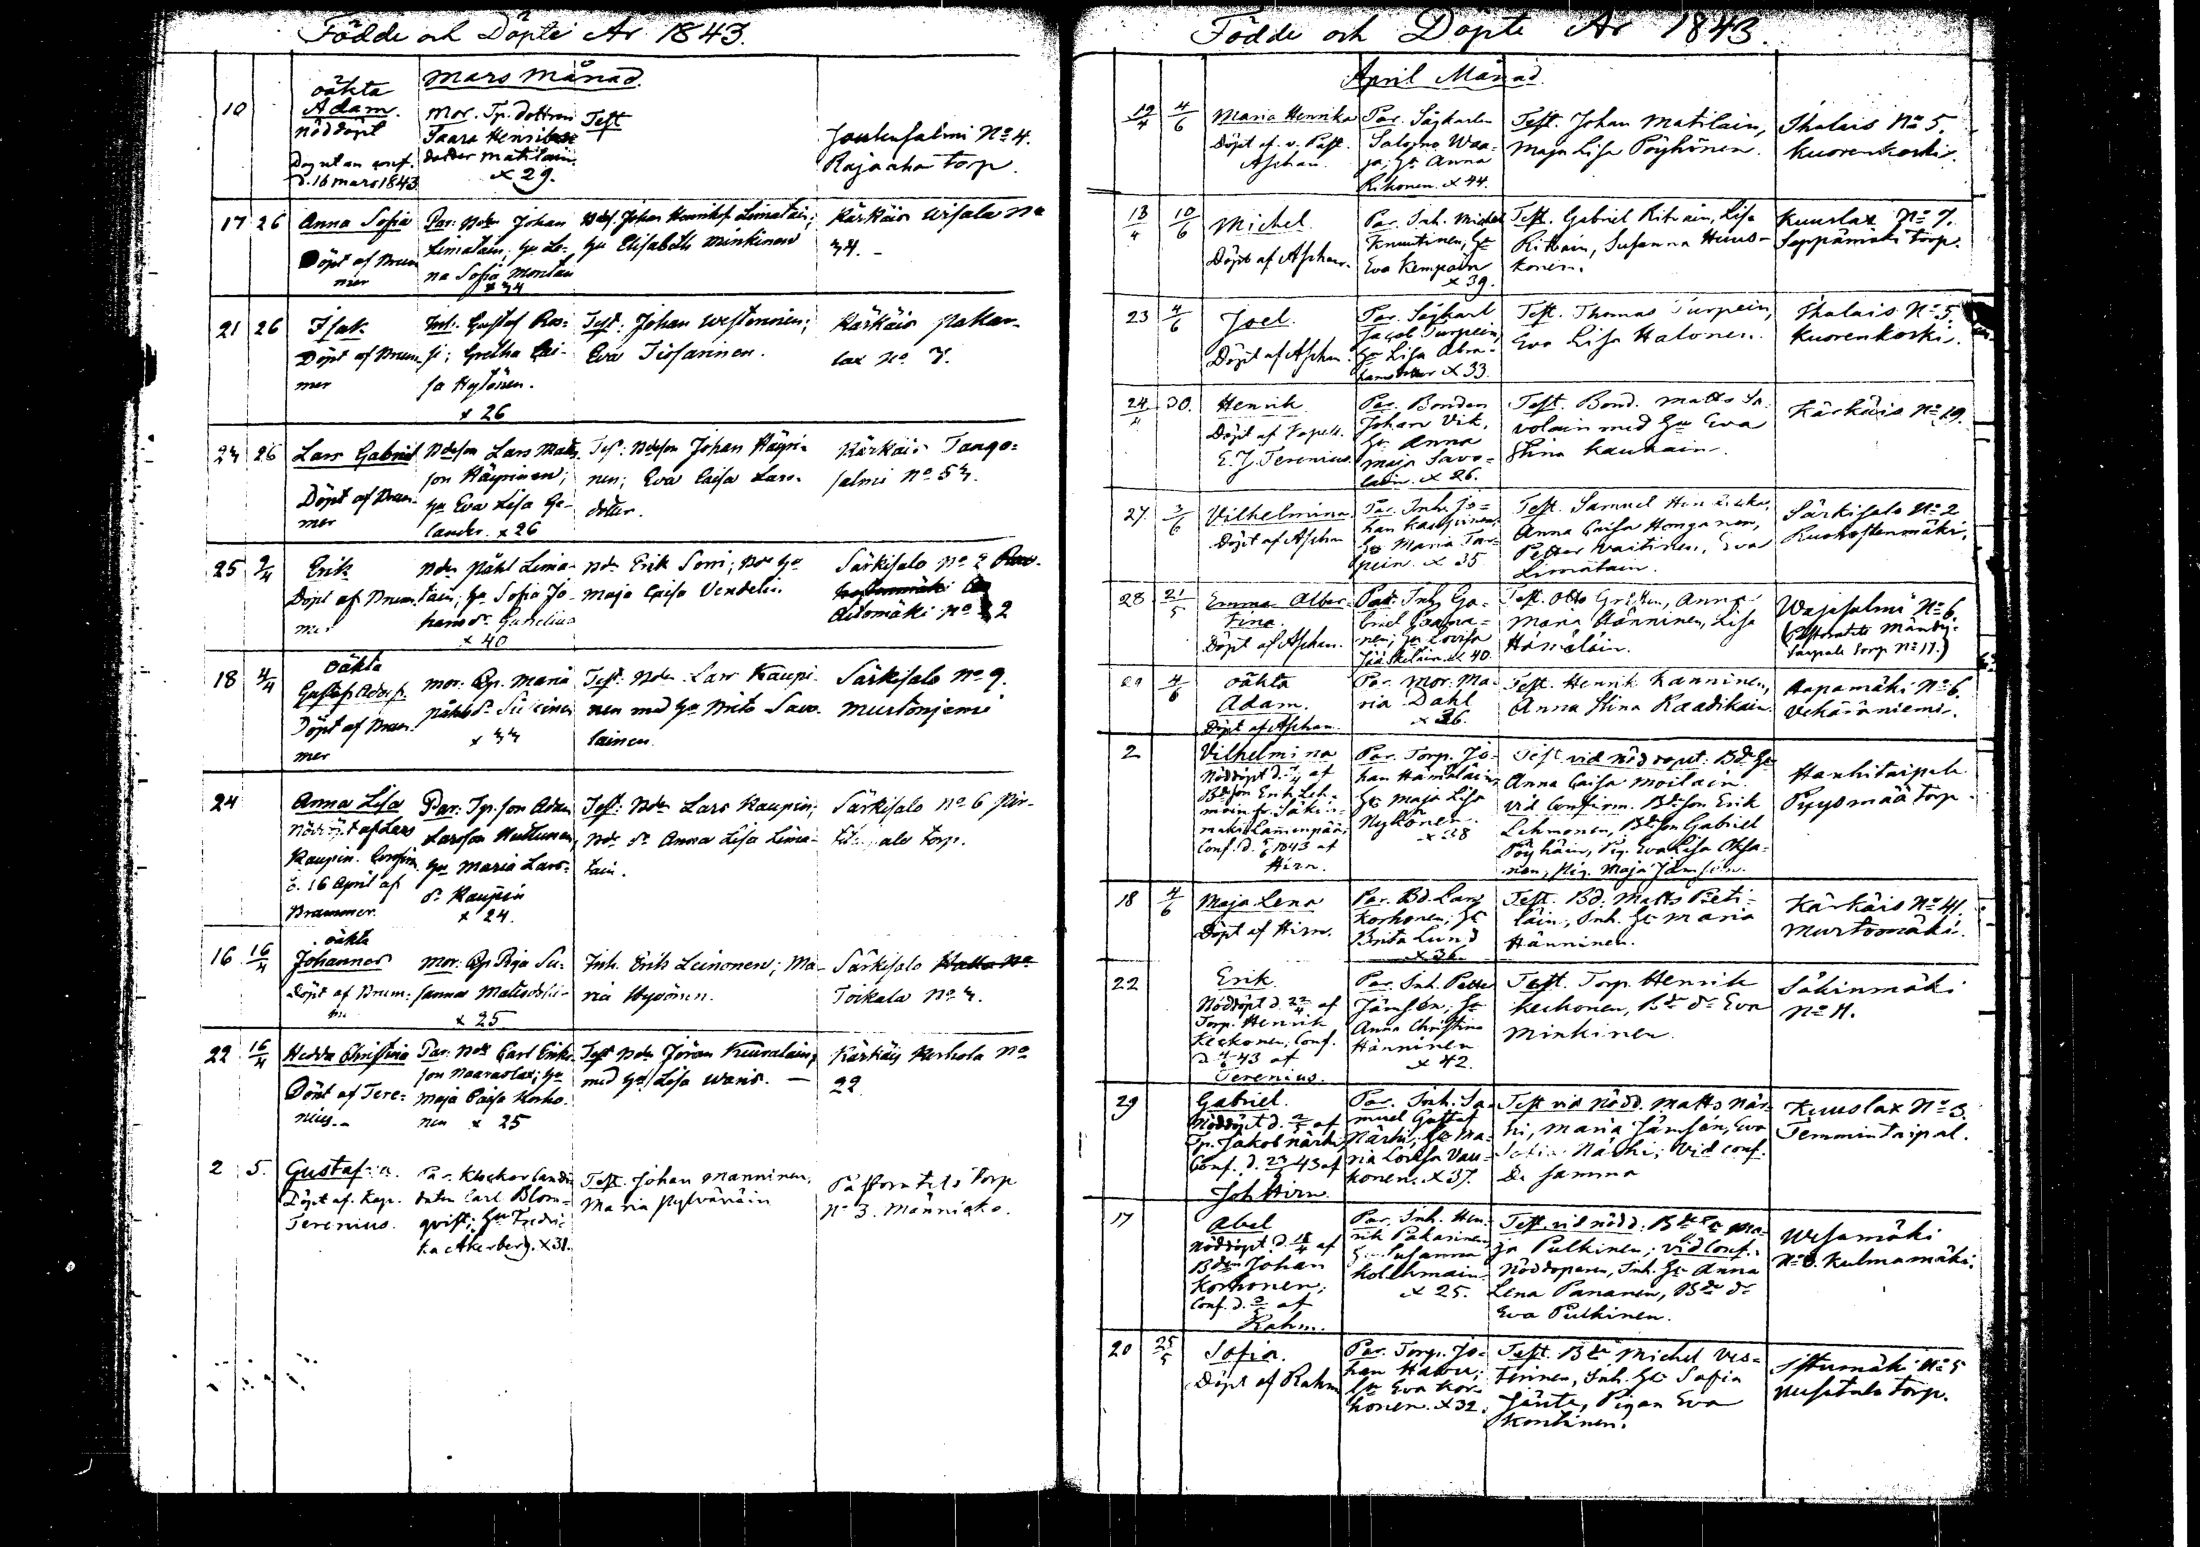 Födde och Döpte År 1843.
Mars Månad.
10
oäkta
Adam.
nöddöpt
conf.
d. 16 mars 1843
Mor. Tp. dottren
Saara Henriks
dotter Matilain
x 29.
Test
Joukensalmi No 4.
Rajaaho torp.
17 26
Anna Sofia
Döpt af Brum
mer
Par: Bdn Johan
Limatain, Hu Le-
na Sofia Montan
x 34
Bdsf. Johan Henriksf. Limatain;
Hu Elisabeth Minkinen
Kärkäis Wisala No
34.
21 26
Isak
Döpt af Brum
mer
Inh. Gustaf Ros-
si; Gretha Cai-
sa Hytönen.
x 26
Test: Johan Westerinen;
Eva Tiosarinen.
Kärkäis Pakar-
lax No 7.
27 26
Lars Gabriel
Döpt af Brum-
mer
Bdeson Lars Mats-
son Häyrinen;
Hu Eva Lisa Ge-
lander. x 26
Tes: Bdeson Johan Häyri-
nen; Eva Caisa Lars-
dotter.
Kärkäis Tango-
salmi No 57.
25 2/4
Erik
Döpt af Brum
mer
Bdn Påhl Lima-
tain; Hu Sofia Jo-
hans dr. Gunelius
x 40
Bdn Erik Sorri; Bde Hu
Maja Caisa Vendelin
Särkisalo No 2
Aitomäki No 2
18 4/4
oäkta
Gustaf Adolf.
Döpt af Brum
mer
Mor. Pig. Maria
Påhls dr
x 33
Test: Bdn. Lars Kaupi-
nen med Hu Brita Savo-
lainen
Särkisalo No 9.
Mustonjemi
24
Anna Lisa
Nöddöpt af Lars
Kaupin. Confirm
d. 16 April af
Brummer.
Par: Tp. son Adam
Larsson Huttunen,
Hu Maria Lars-
dr Kaupin
x 24.
Test: Bdn Lars Kaupin;
Bde dr Anna Lisa Lima-
tain.
Särkisalo No 6
torp.
16 16/4
oäkta
Johannes
Döpt af Brum-
mer
Mor: Pig Su-
sanna Matsdotter
x 25
Inh. Erik Leinonen; Ma-
ria Hyvönen.
Särkisalo
Toikala No 7.
22 16/4
Hedda Christina
Döpt af Tere-
nius.
Par: Bdn Carl Eriks-
son Naaraslax; Hu
Maja Caisa Korho-
nen x 25
Test Bdn Jöran Kuuvalain,
med Hu Lisa Waris.
Kärkäis Kerhola No
22
2 5.
Gustafva.
Döpt af Kapn.
Terenius.
Par. Klockar
Carl Blom-
qvist; Hu Fredri-
ka Åkerberg. x 31.
Test. Johan Manninen,
Maria Pylvänäin
Pastoratets torp
No 3. Männiaho.
Födde och Döpte År 1843.
April Månad.
19/4 4/6
Maria Henrika
Döpt af v. Past.
Aschan.
Par. Sågkarlen
Salomo Waa-
ja; Hu Anna
Rikonen. x 44.
Test. Johan Matilain,
Maja Lisa Pöyhönen.
Ihalais No 5.
Kuorenkoski.
13/4 10/6
Michel
Döpt af Aschan.
Par. Inh. Michel
Knuutinen, Hu
Eva Kempain
x 39.
Test. Gabriel Ritvain, Lisa
Ritvain, Susanna Huus-
konen.
Kuuslax No 7.
Seppämäki torp.
23 4/6
Joel.
Döpt af Aschan.
Par. Sågkarl
Jacob Turpein,
Hu Lisa Abra-
hamsdotter x 33.
Test. Thomas Turpein,
Eva Lisa Halonen.
Ihalais No 5
Kuorenkoski.
24/4 30.
Henrik
Döpt af Kapell.
E. J. Terenius.
Par. Bonden
Johan Vik,
Hu Anna
Maja Savo-
lain. x 26.
Test. Bond. Matts Sa-
volain med Hu Eva
Stina Kauhain.
Kärkäis No 19.
27. 3/6
Vilhelmina.
Döpt af Aschan
Par. Inh. Jo-
han Kaupinen,
Hu Maria Tar-
pein. x 35
Test. Samuel
Anna Caisa Honganen,
Petter Waitinen, Eva
Limatain.
Särkisalo No 2
Ruohostenmäki,
28 21/5
Emma Alber-
tina.
Döpt af Aschan.
Par. Inh. Ga-
briel
nen; Hu Lovisa
Jääskelain. x 40.
Test. Otto Anna
Maria Hänninen, Lisa
Hämäläin.
Wajasalmi No 6
(Pastoratets
torp No 17.)
29 4/6
oäkta
Adam.
Döpt af Aschan.
Par. Mor. Ma-
ria Dahl
x 36.
Test. Henrik Kanninen,
Anna Stina Raadikain.
Aapamäki No 6.
Vehääniemi.
2
Vilhelmina
Nöddöpt af
Bdeson Erik Leh-
moin
Conf. d. 1843 af
Hirn.
Par. Torp. Jo-
han Hämäläin,
Hu Maja Lisa
Nykänen.
x 38
Test vid nöddopet. Bde Hu
Anna Caisa Moilain.
vid Confirm. Bde son Erik
Lehmonen, Bde son Gabriel
Pöyhäin, Pig. Eva Lisa Oksa-
nen, Pig. Maja Jämsen.
Hankitaipale
Pyysmää torp.
18 4/6
Maja Lena
Döpt af Hirn.
Par. Bd. Lars
Korhonen; Hu
Brita Lund
x 36.
Test. Bd. Matts Pieti-
läin, Inh. Hu Maria
Hänninen.
Kärkäis No 41.
Murtomäki.
22
Erik.
Nöddöpt d. 22/4 af
Torp. Henrik
Keckonen, Conf.
d. 4/6 43 af
Terenius.
Par. Inh. Petter
Jämsen; Hu
Anna Christina
Hänninen
x 42.
Test. Torp. Henrik
Keckonen, Bde dr Eva
Minkinen.
Säkinmäki
No 11.
29
Gabriel.
Nöddöpt d. 2/5 af
Tp. Jakob Närhi
Conf. d. 43 af
Joh Hirn.
Par. Inh. Sa-
muel Gustaf
Närhi, Hu Ma-
ria Lovisa Vau-
konen. x 37.
Test vid nödd. Matts När-
hi, Maria Jämsen, Eva
Sofia Närhi; vid conf.
De samma
Kuuslax No 3.
Temmintaipal.
17
Abel
Nöddöpt. d. 18/4 af
Bdeson Johan
Korhonen;
Conf. d. af
Rahm.
Par. Inh. Hen-
rik Pakarinen
Hu Susanna
Kolehmain.
x 25.
Test. vid nödd. Bde dr Ma-
ja Pulkinen; vid Conf.
Nöddoparen, Inh. Hu Anna
Lena Pananen, Bde dr
Eva Pulkinen.
Wesamäki
No 8. Kulmamäki.
20 25/5
Sofia.
Döpt af Rahm
Par. Torp. Jo-
han Hawu;
Hu Eva Kor-
honen. x 32.
Test. Bde Michel Ves-
terinen, Inh. Hu Sofia
Jänte, Pigan Eva
Kontinen.
Istumäki No 5
torp.